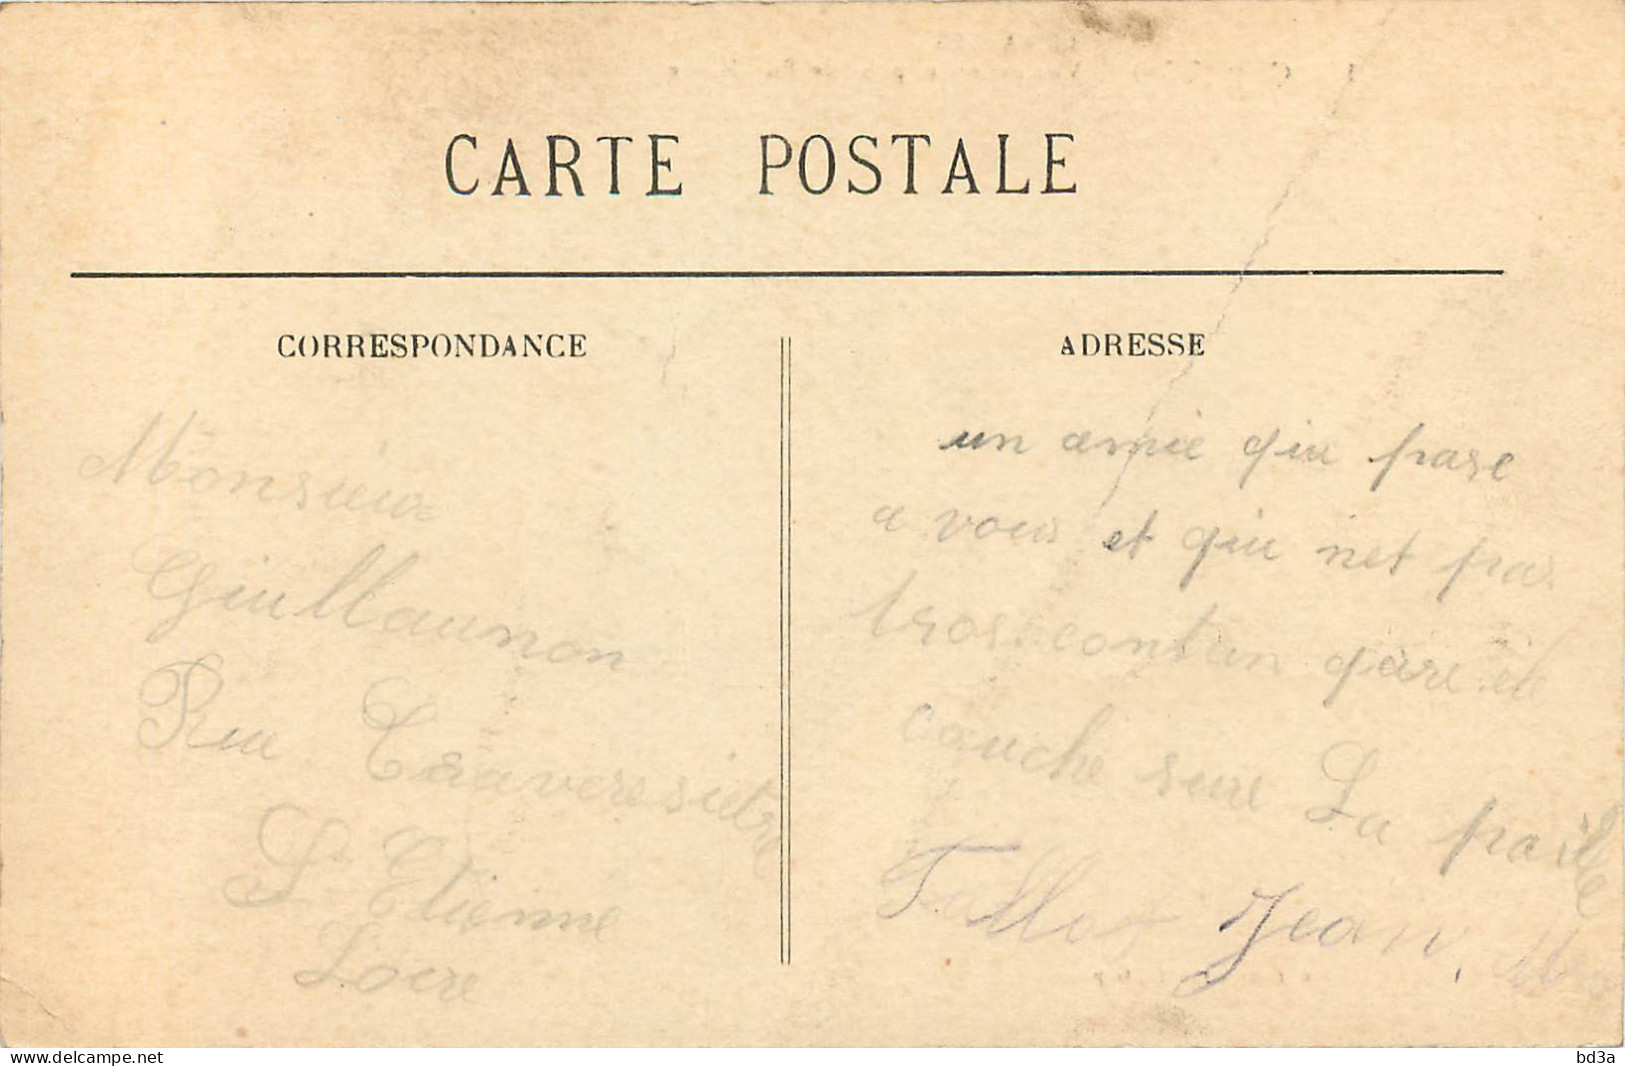 CARTE POSTALE
CORRESPONDANCE
ADRESSE
Monsieur
Guillaumon
Rue Traverssière
St Etienne
Loire
un amie qui pase
a vous et qui net pas
tros contan quare il
couche sure La paille
Jean
www.delcampe.net
bd3a